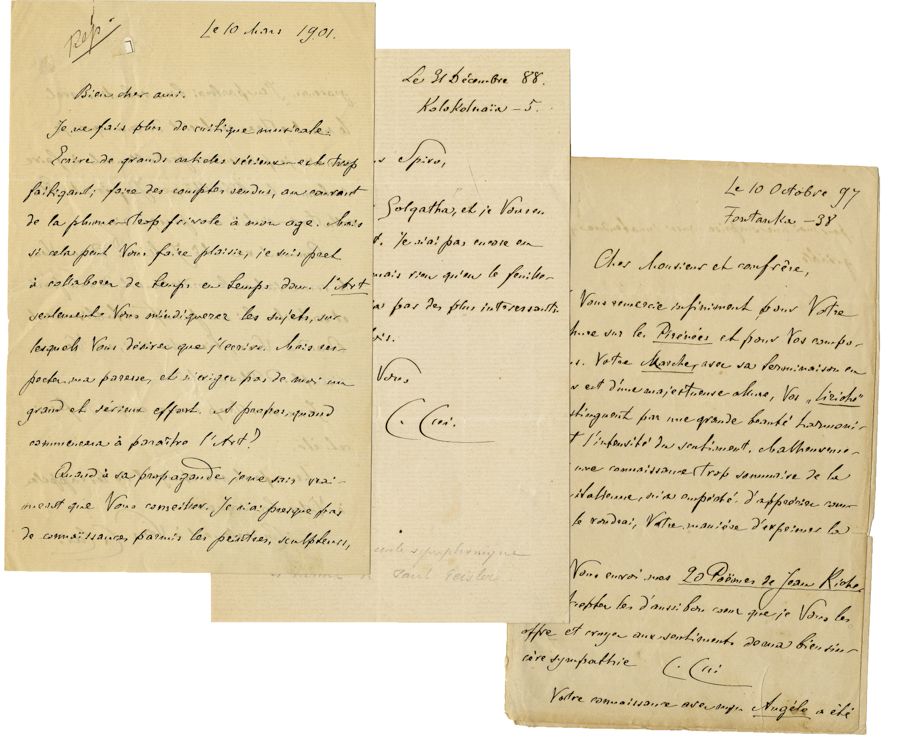 Rép.
Le 10 Mars 1901.
Bien cher ami.
Je ne fais plus de critique musicale.
Ecrire de grands articles sérieux – est trop
fatigant; faire des comptes rendus, au courant
de la plume – trop frivole à mon age. Mais
si cela peut Vous faire plaisir, je suis pret
à collaborer de temps en temps dans l'Art
seulement Vous m'indiquerez les sujets, sur
lesquels Vous désirez que j'écrive. Mais res-
pectez ma paresse, et n'exigez pas de moi un
grand et sérieux effort. A propos, quand
commencera à paraître l'Art?
Quand à sa propagande je ne sais vrai-
ment que Vous conseiller. Je n'ai presque pas
de connaissances parmis les peintres, sculpteurs,
Le 31 Décembre 88.
Kolokolnaïa – 5.
Spiro,
Golgatha, et je Vous en
. Je n'ai pas encore eu
mais rien qu'en le feuille-
pas des plus interessants
Vous,
C. Cui.
symphonique
Paul Geisler
Le 10 Octobre 97
Fontanka – 38
Cher Monsieur et confrère,
Vous remercie infiniment pour Votre
sur les Pirénées et pour Vos compo-
. Votre Marche, avec sa terminaison en
est d'une majestueuse allure, Vos „Liriche"
stinguent par une grande beauté harmoni-
t l'intensité du sentiment. Malheureuse-
une connaissance trop sommaire de la
italienne, m'a empêché d'apprécier comme
le voudrai, Votre manière d'exprimer la
Vous envoi mes 20 Poëmes de Jean Riche
les d'aussi bon cœur que je Vous les
offre et croyez aux sentiments de ma bien sin-
cère sympathie
C. Cui
Votre connaissance avec mon Angélo a été